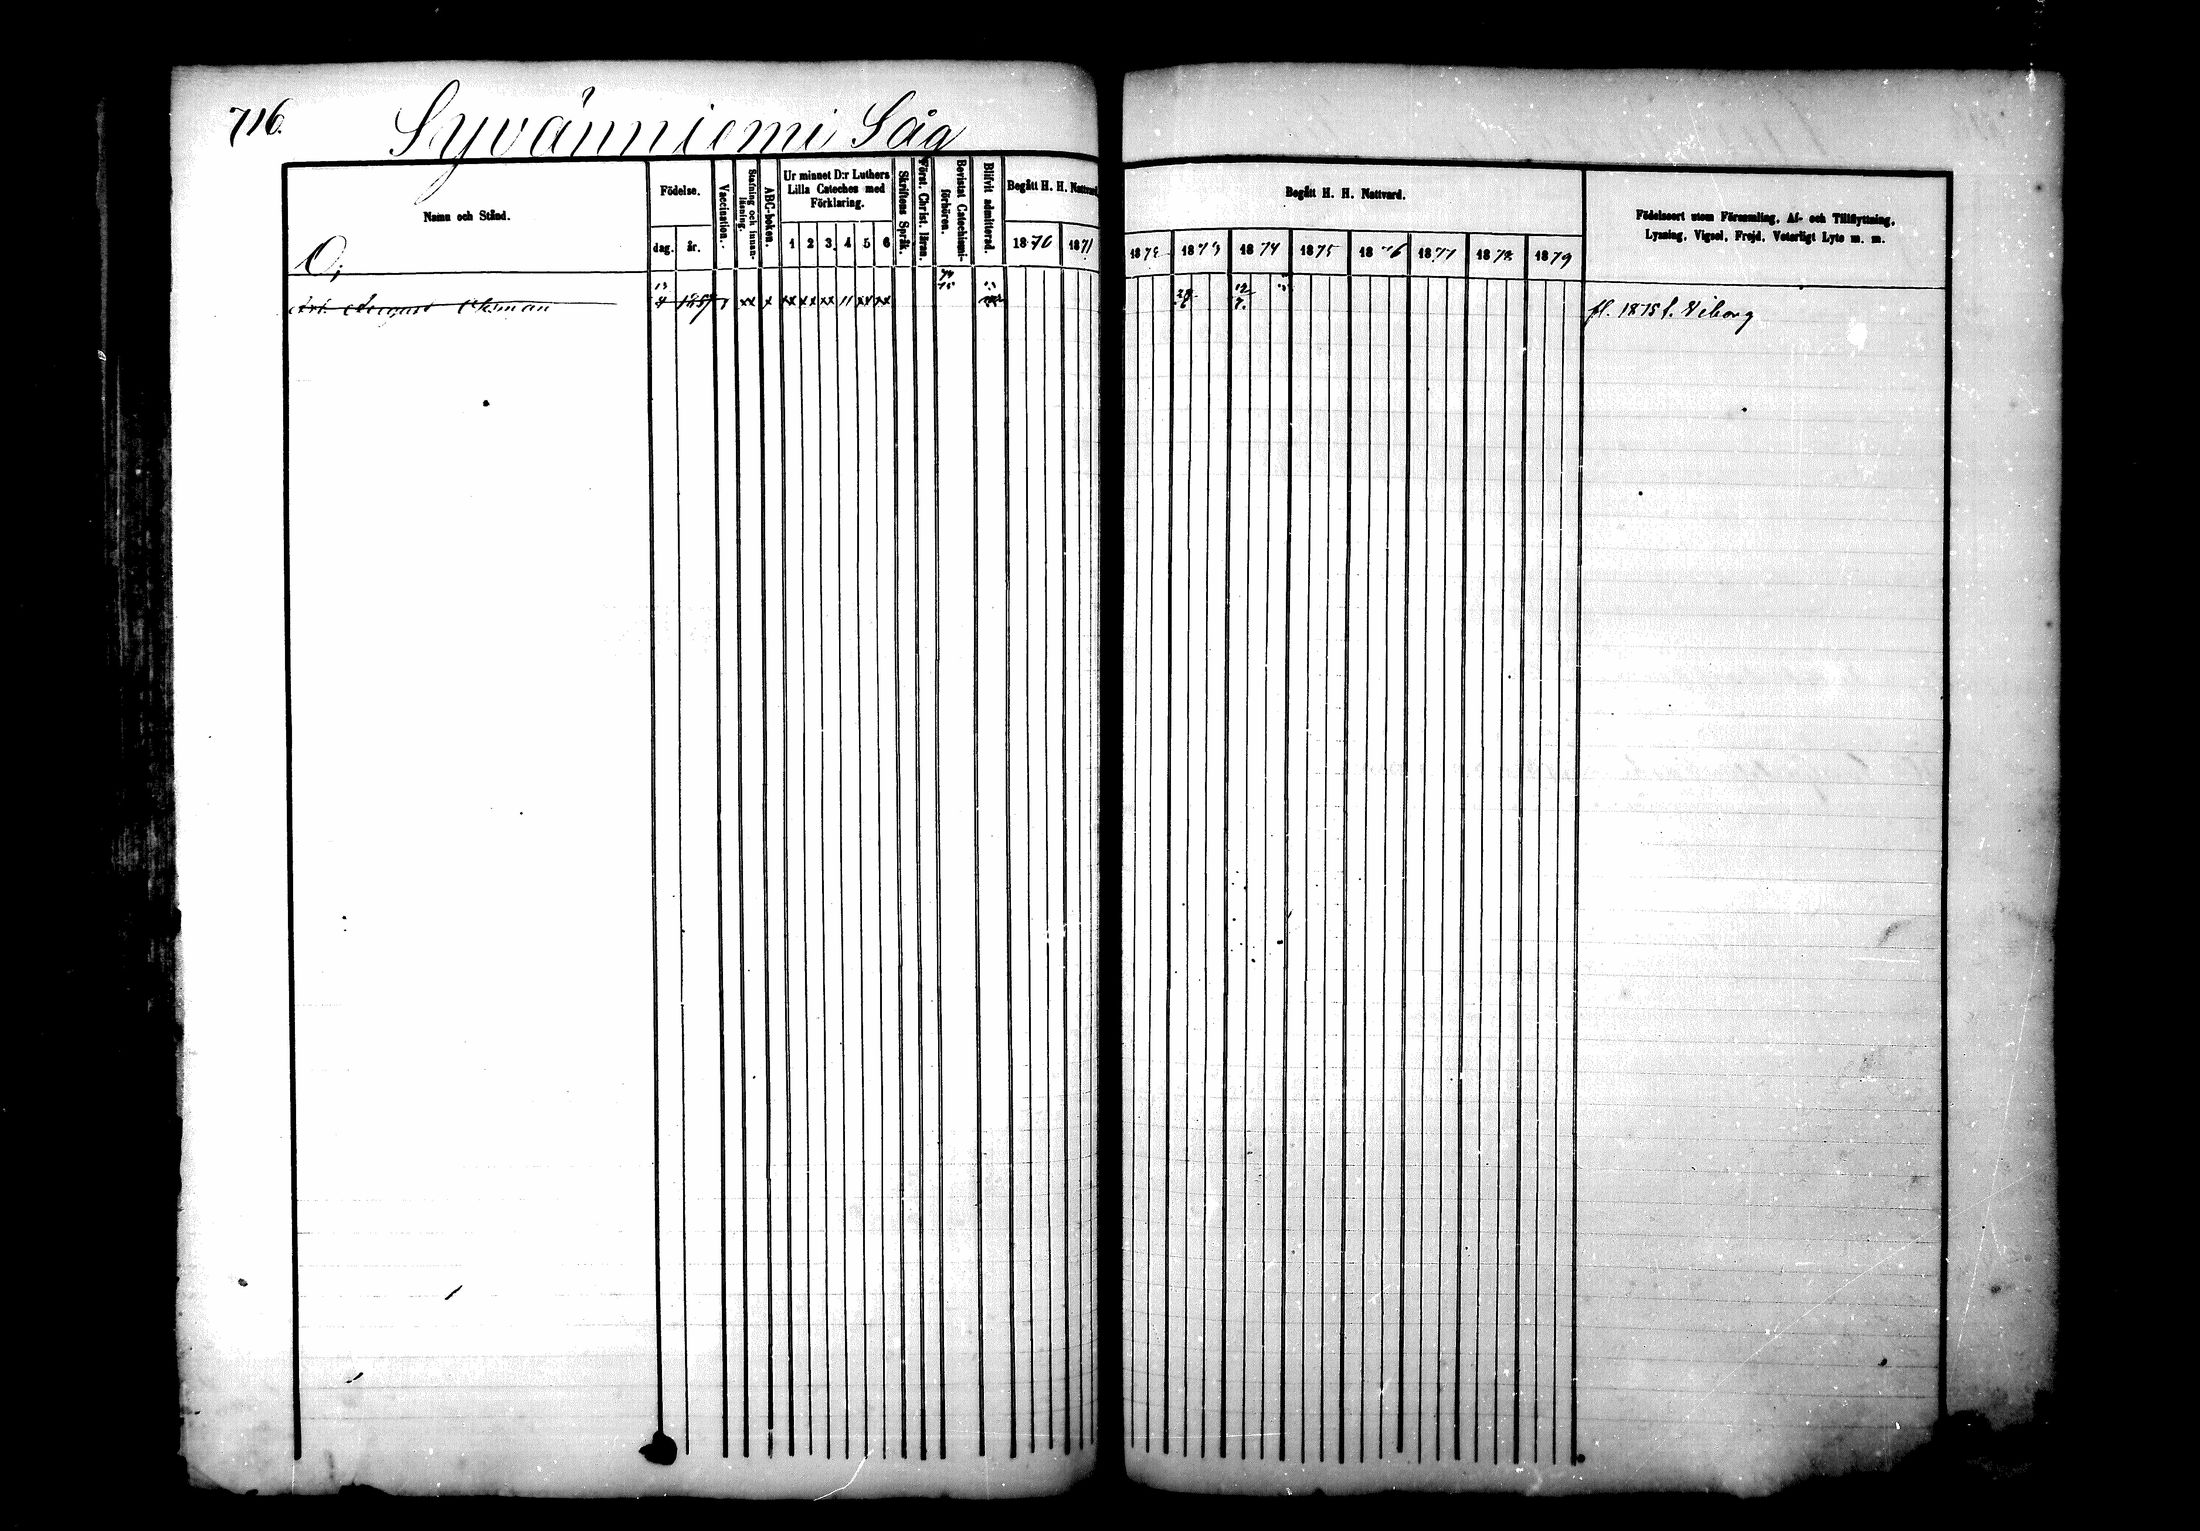 716.
Syvänniemi Såg
Namn och Stånd.
Födelse.
dag.
år.
Vaccination.
Stafning och innanläsning.
ABC-boken.
Ur minnet D:r Luthers
Lilla Cateches med
Förklaring.
1 2 3 4 5 6
Skriftens Språk.
Först. Christ. läran.
Bevistat Catechismi-
förhören.
Blifvit admitterad.
Begått H. H. Nattvard.
1870 1871
Begått H. H. Nattvard.
1872 1873 1874 1875 1876 1877 1878 1879
Födelseort utom Församling, Af- och Tillflyttning,
Lysning, Vigsel, Frejd, Veterligt Lyte m. m.
O;
August Oksman 13/4 1857 xx x xx xx xx 11 xx xx
12/7
fl. 1875 t. Viborg